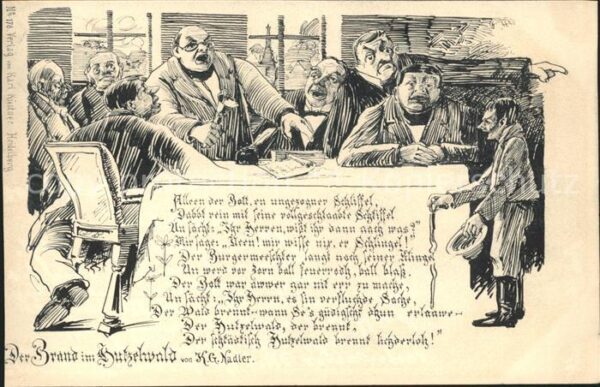 No 178 Verlag von Karl Kistner Heidelberg.
Alleen der Gott, en ungezogner Schliffel,
Dabbt rein mit seine vollgeschlabte Schtiffel
Un sacht: „Ihr Herren, wißt ihr dann aach was?“
Mir sage: „Neen! mir wisse nix, er Schlingel!“
Der Bürgermeeschter langt nach seiner Klingel
Un werd vor Zorn ball feuerroth, ball blaß.
Der Gott war awwer gar nit err zu mache,
Un sacht: „Ihr Herrn, es sin verfluchde Sache,
Der Wald brennt wann Se's güdigscht dhun erlaawe—
Der Hutzelwald, der brennt.
Der schtädtisch Hutzelwald brennt lichderloh!“
Der Brand im Hutzelwald von K. G. Nadler.